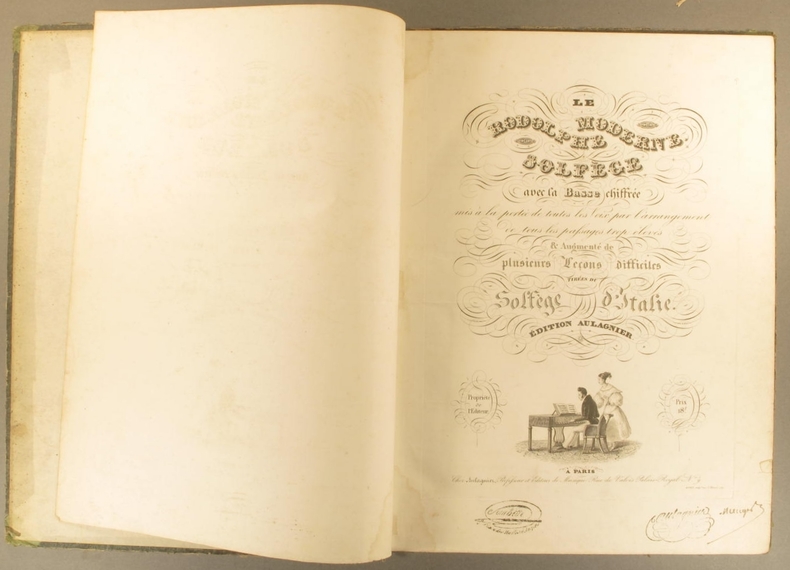 LE
RODOLPHE MODERNE
SOLFÈGE
avec la Basse chiffrée
mis à la portée de toutes les voix par l'arrangement
de tous les passages trop élevés
& Augmenté de
plusieurs Leçons difficiles
TIRÉES DU
Solfège d'Italie.
ÉDITION AULAGNIER
Propriété
de
l'Editeur
Prix
18f
À PARIS
Chez Aulagnier, Professeur et Editeur de Musique, Rue du Valois Palais Royal, N° 9